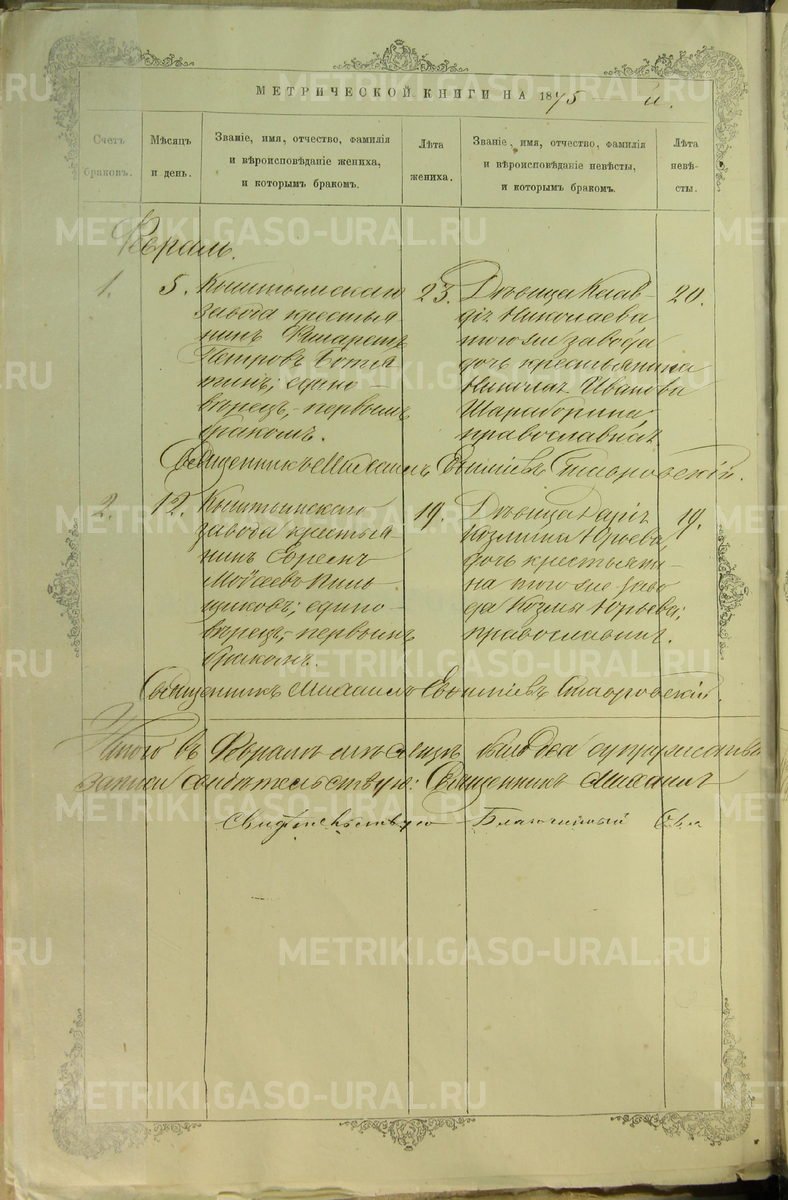 МЕТРИЧЕСКОЙ КНИГИ НА 1875 й.
Счетъ браковъ.
Мѣсяцъ и день.
Званіе, имя, отчество, фамилія и вѣроисповѣданіе жениха, и которымъ бракомъ.
Лѣта жениха.
Званіе, имя, отчество, фамилія и вѣроисповѣданіе невѣсты, и которымъ бракомъ.
Лѣта невѣсты.
Февраль.
1.
5.
Кыштымскаго
завода крестья
нинъ Филаретъ
Петровъ
тинъ; едино-
вѣрецъ,- первымъ
бракомъ.
23.
Дѣвица Клав-
дія Николаева
того же завода
дочь крестьянина
Николая Иванова
православная
20.
Священникъ Михаилъ Евѳиміевъ Ставровскій.
2.
12.
Кыштымскаго
завода крестья
нинъ Ефремъ
Моѵсеевъ Пиль-
щиковъ; едино-
вѣрецъ,- первымъ
бракомъ.
19.
Дѣвица Дарія
Козмина Юрьева,
дочь крестьяни-
на того же заво
да Козмы Юрьева;
православная.
19.
Священникъ Михаилъ Евѳиміевъ Ставровскій.
Итого въ Февралѣ мѣсяцѣ было два супружества
записи свидѣтельствую: Священникъ Михаилъ
Свидѣтельствую Благочинный
METRIKI.GASO-URAL.RU